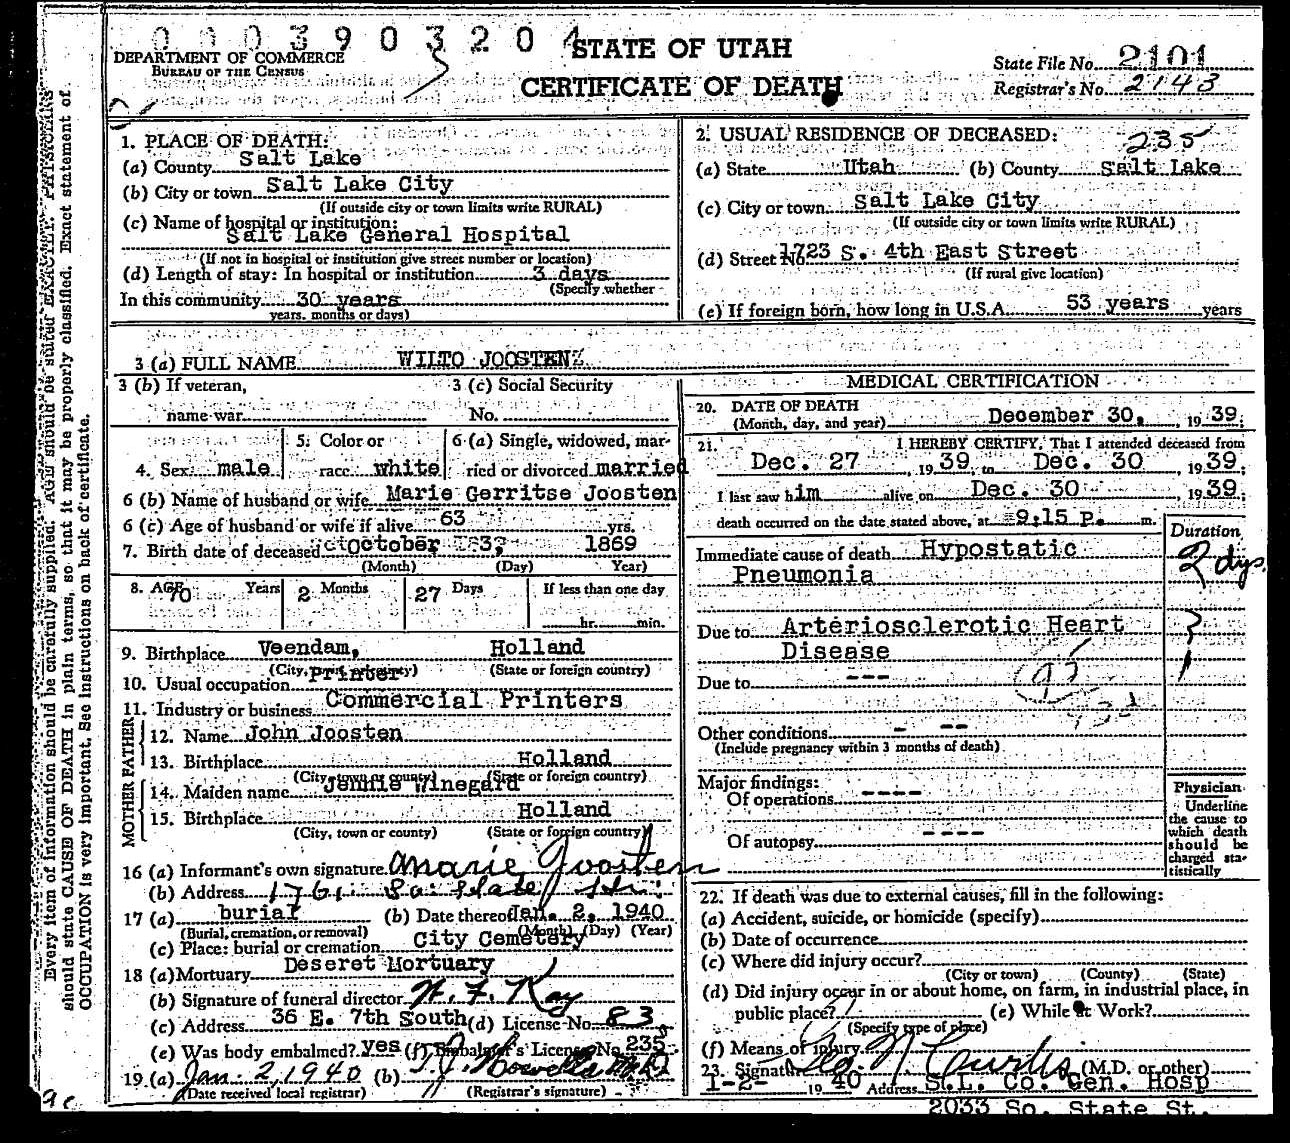 0003903204
STATE OF UTAH
CERTIFICATE OF DEATH
DEPARTMENT OF COMMERCE
BUREAU OF THE CENSUS
State File No. 2101
Registrar's No. 2143
Every item of information should be carefully supplied. AGE should be stated EXACTLY. PHYSICIANS
should state CAUSE OF DEATH in plain terms, so that it may be properly classified. Exact statement of
OCCUPATION is very important. See instructions on back of certificate.
1. PLACE OF DEATH:
(a) County Salt Lake
(b) City or town Salt Lake City
(If outside city or town limits write RURAL)
(c) Name of hospital or institution:
Salt Lake General Hospital
(If not in hospital or institution give street number or location)
(d) Length of stay: In hospital or institution 3 days
(Specify whether
In this community 30 years
years, months or days)
2. USUAL RESIDENCE OF DECEASED: 235
(a) State Utah (b) County Salt Lake
(c) City or town Salt Lake City
(If outside city or town limits write RURAL)
(d) Street No. 1723 S. 4th East Street
(If rural give location)
(e) If foreign born, how long in U.S.A. 53 years years
3 (a) FULL NAME WILTO JOOSTEN
3 (b) If veteran,
name war
3 (c) Social Security
No.
4. Sex male
5. Color or
race white
6 (a) Single, widowed, mar-
ried or divorced married
6 (b) Name of husband or wife Marie Gerritse Joosten
6 (c) Age of husband or wife if alive 63 yrs.
7. Birth date of deceased October 3, 1869
(Month) (Day) Year)
8. AGE 70 Years 2 Months 27 Days If less than one day
hr. min.
9. Birthplace Veendam, Holland
(City, town or county) (State or foreign country)
10. Usual occupation Printer
11. Industry or business Commercial Printers
FATHER
12. Name John Joosten
13. Birthplace Holland
(City, town or county) (State or foreign country)
MOTHER
14. Maiden name Jennie Winegard
15. Birthplace Holland
(City, town or county) (State or foreign country)
16 (a) Informant's own signature Marie Joosten
(b) Address 1761 So. State St.
17 (a) burial (b) Date thereof Jan. 2, 1940
(Burial, cremation, or removal) (Month) (Day) (Year)
(c) Place: burial or cremation City Cemetery
18 (a) Mortuary Deseret Mortuary
(b) Signature of funeral director
(c) Address 36 E. 7th South (d) License No. 83
(e) Was body embalmed? yes (f) Embalmer's License No. 235
19 (a) Jan. 2, 1940 (b)
(Date received local registrar) (Registrar's signature)
MEDICAL CERTIFICATION
20. DATE OF DEATH
(Month, day, and year) December 30, 1939
21. I HEREBY CERTIFY, That I attended deceased from
Dec. 27, 1939, to Dec. 30 1939.
I last saw him alive on Dec. 30 1939.
death occurred on the date stated above, at 9:15 P. m.
Duration
Immediate cause of death Hypostatic
Pneumonia 2 dys.
Due to Arteriosclerotic Heart
Disease
Due to ---
Other conditions - --
(Include pregnancy within 3 months of death)
Major findings:
Of operations ----
Of autopsy ----
Physician
Underline
the cause to
which death
should be
charged sta-
tistically
22. If death was due to external causes, fill in the following:
(a) Accident, suicide, or homicide (specify)
(b) Date of occurrence
(c) Where did injury occur?
(City or town) (County) (State)
(d) Did injury occur in or about home, on farm, in industrial place, in
public place? (e) While at Work?
(Specify type of place)
(f) Means of injury
23. Signature (M.D. or other)
1-2- 1940 Address S.L. Co. Gen. Hosp
2033 So. State St.